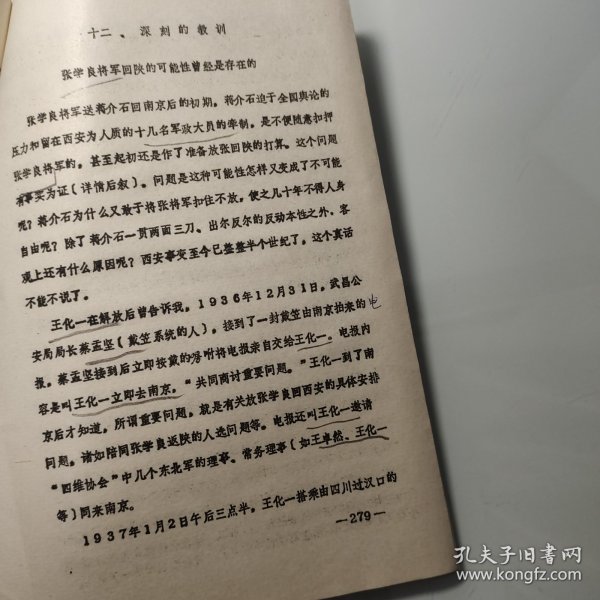 十二、深刻的教训
张学良将军回陕的可能性曾经是存在的
张学良将军送蒋介石回南京后的初期。蒋介石迫于全国舆论的
压力和留在西安为人质的十几名军政大员的牵制，是不便随意扣押
张学良将军的。甚至起初还是作了准备放张回陕的打算。这个问题
有事实为证（详情后叙）。问题是这种可能性怎样又变成了不可能
呢？蒋介石为什么又敢于将张将军扣住不放，使之几十年不得人身
自由呢？除了蒋介石一贯两面三刀、出尔反尔的反动本性之外，客
观上还有什么原因呢？西安事变至今已整整半个世纪了。这个真话
不能不说了。
王化一在解放后曾告诉我，1936年12月31日，武昌公
安局局长蔡孟坚（戴笠系统的人），接到了一封戴笠由南京拍来的电
报。蔡孟坚接到后立即按戴的吩咐将电报亲自交给王化一。电报内
容是叫王化一立即去南京，“共同商讨重要问题。”王化一到了南
京后才知道，所谓重要问题，就是有关放张学良回西安的具体安排
问题。诸如陪同张学良返陕的人选问题等。电报还叫王化一邀请
“四维协会”中几个东北军的理事、常务理事（如王卓然、王化一
等）同来南京。
1937年1月2日午后三点半，王化一搭乘由四川过汉口的
—279—
孔夫子旧书网
www.kongfz.com